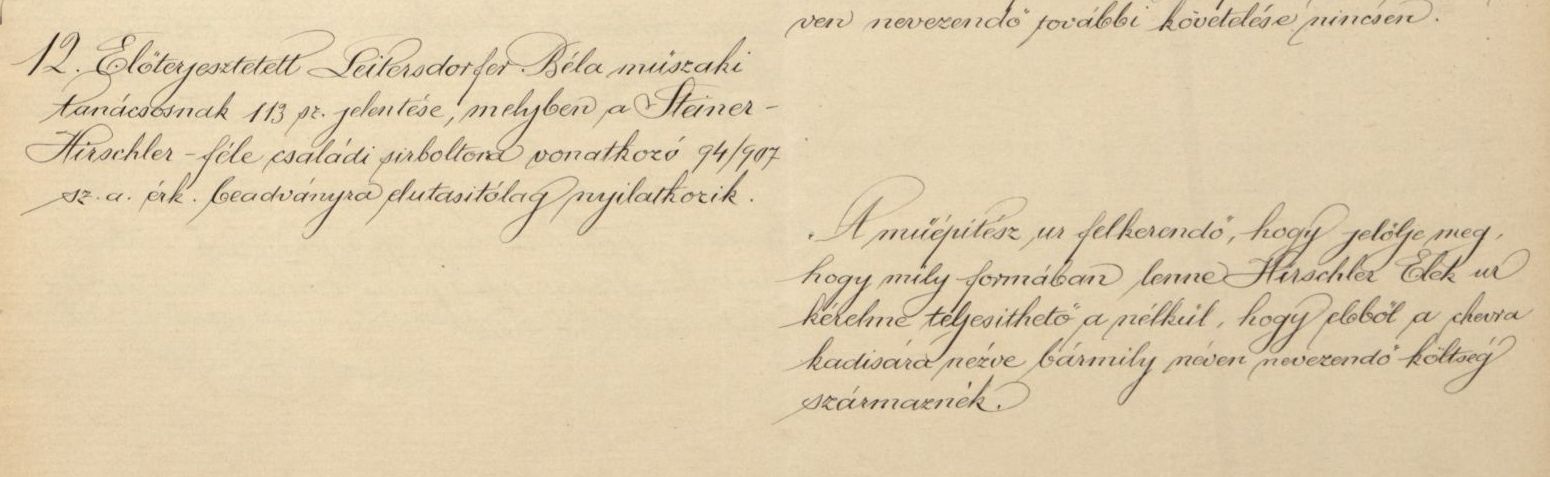 ven nevezendő további követelése nincsen.
12. Előterjesztetett Leitersdorfer Béla műszaki
tanácsosnak 113 sz. jelentése, melyben a Steiner-
Hirschler-féle családi sirboltora vonatkozó 94/907
sz. a. érk. beadványra elutasitólag nyilatkozik.
A műépitész ur felkerendő, hogy jelölje meg,
hogy mily formában lenne Hirschler Elek ur
kérelme teljesithető a nélkül, hogy ebből a chevra
kadisára nézve bármily néven nevezendő költség
származnék.